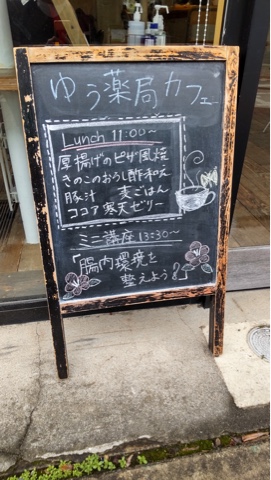 ゆう薬局カフェ
Lunch 11:00〜
厚揚げのピザ風焼
きのこのおろし酢和え
豚汁 麦ごはん
ココア寒天ゼリー
ミニ講座 13:30〜
「腸内環境を
整えよう!」